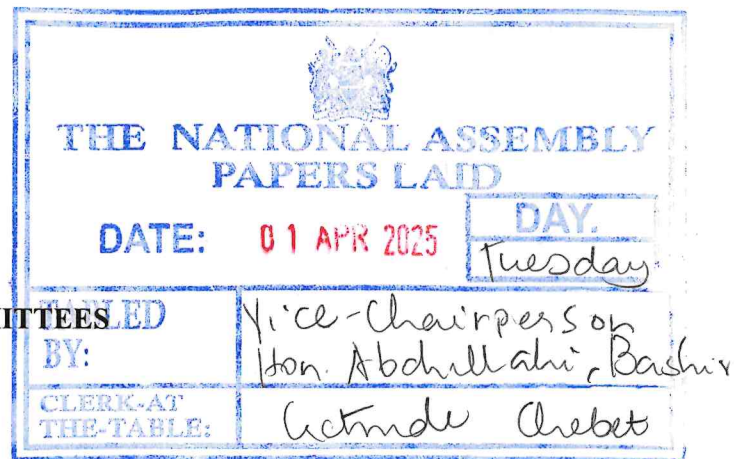 THE NATIONAL ASSEMBLY
PAPERS LAID
DATE: 01 APR 2025
DAY.
Tuesday
MITTEES
TABLED
BY:
Vice-Chairperson
Hon. Abdullahi, Bashir
CLERK-AT
THE-TABLE:
Chebet